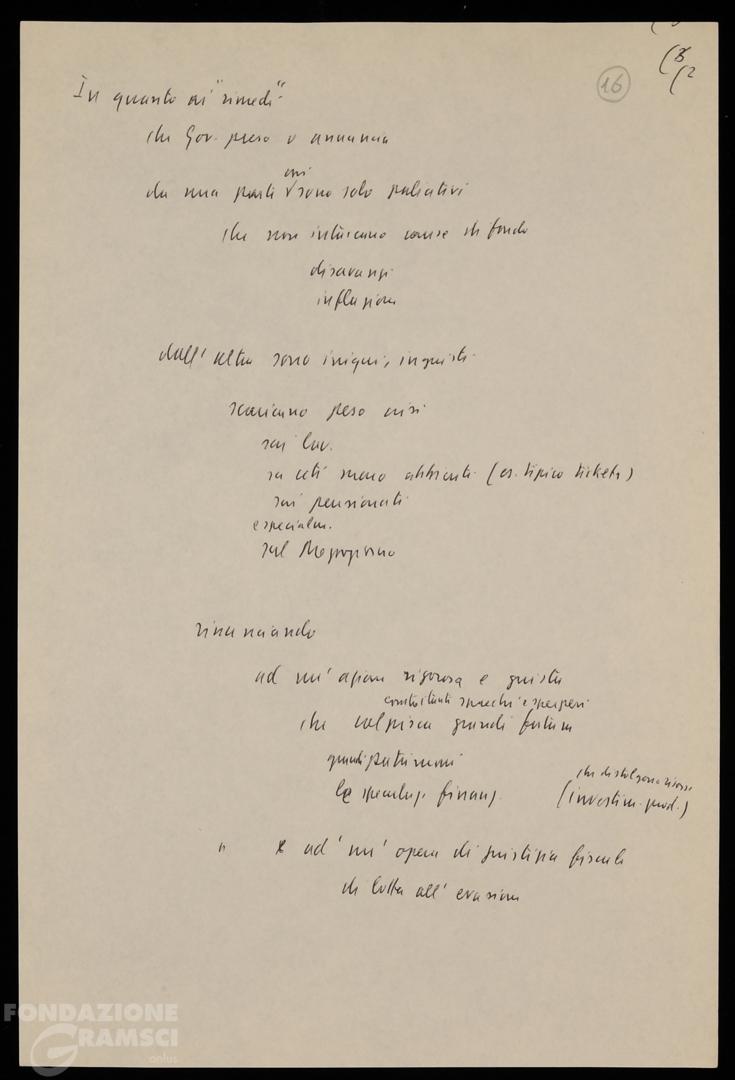 16
In quanto ai "rimedi"
che Gov. preso o annuncia
da una parte essi sono solo palliativi
che non intaccano cause di fondo
disavanzi
inflazione
dall'altra sono iniqui, ingiusti
scaricano peso crisi
sui lav.
su ceti meno abbienti (es. tipico tickets)
sui pensionati
especialm.
sul Mezzogiorno
rinunciando
ad un'azione rigorosa e giusta
contro tanti sprechi e sperperi
che colpisca grandi fortune
grandi patrimoni
che distolgono risorse
le speculaz. finanz. (investim. prod.)
" e ad un'opera di giustizia fiscale
di lotta all'evasione
FONDAZIONE
GRAMSCI
onlus